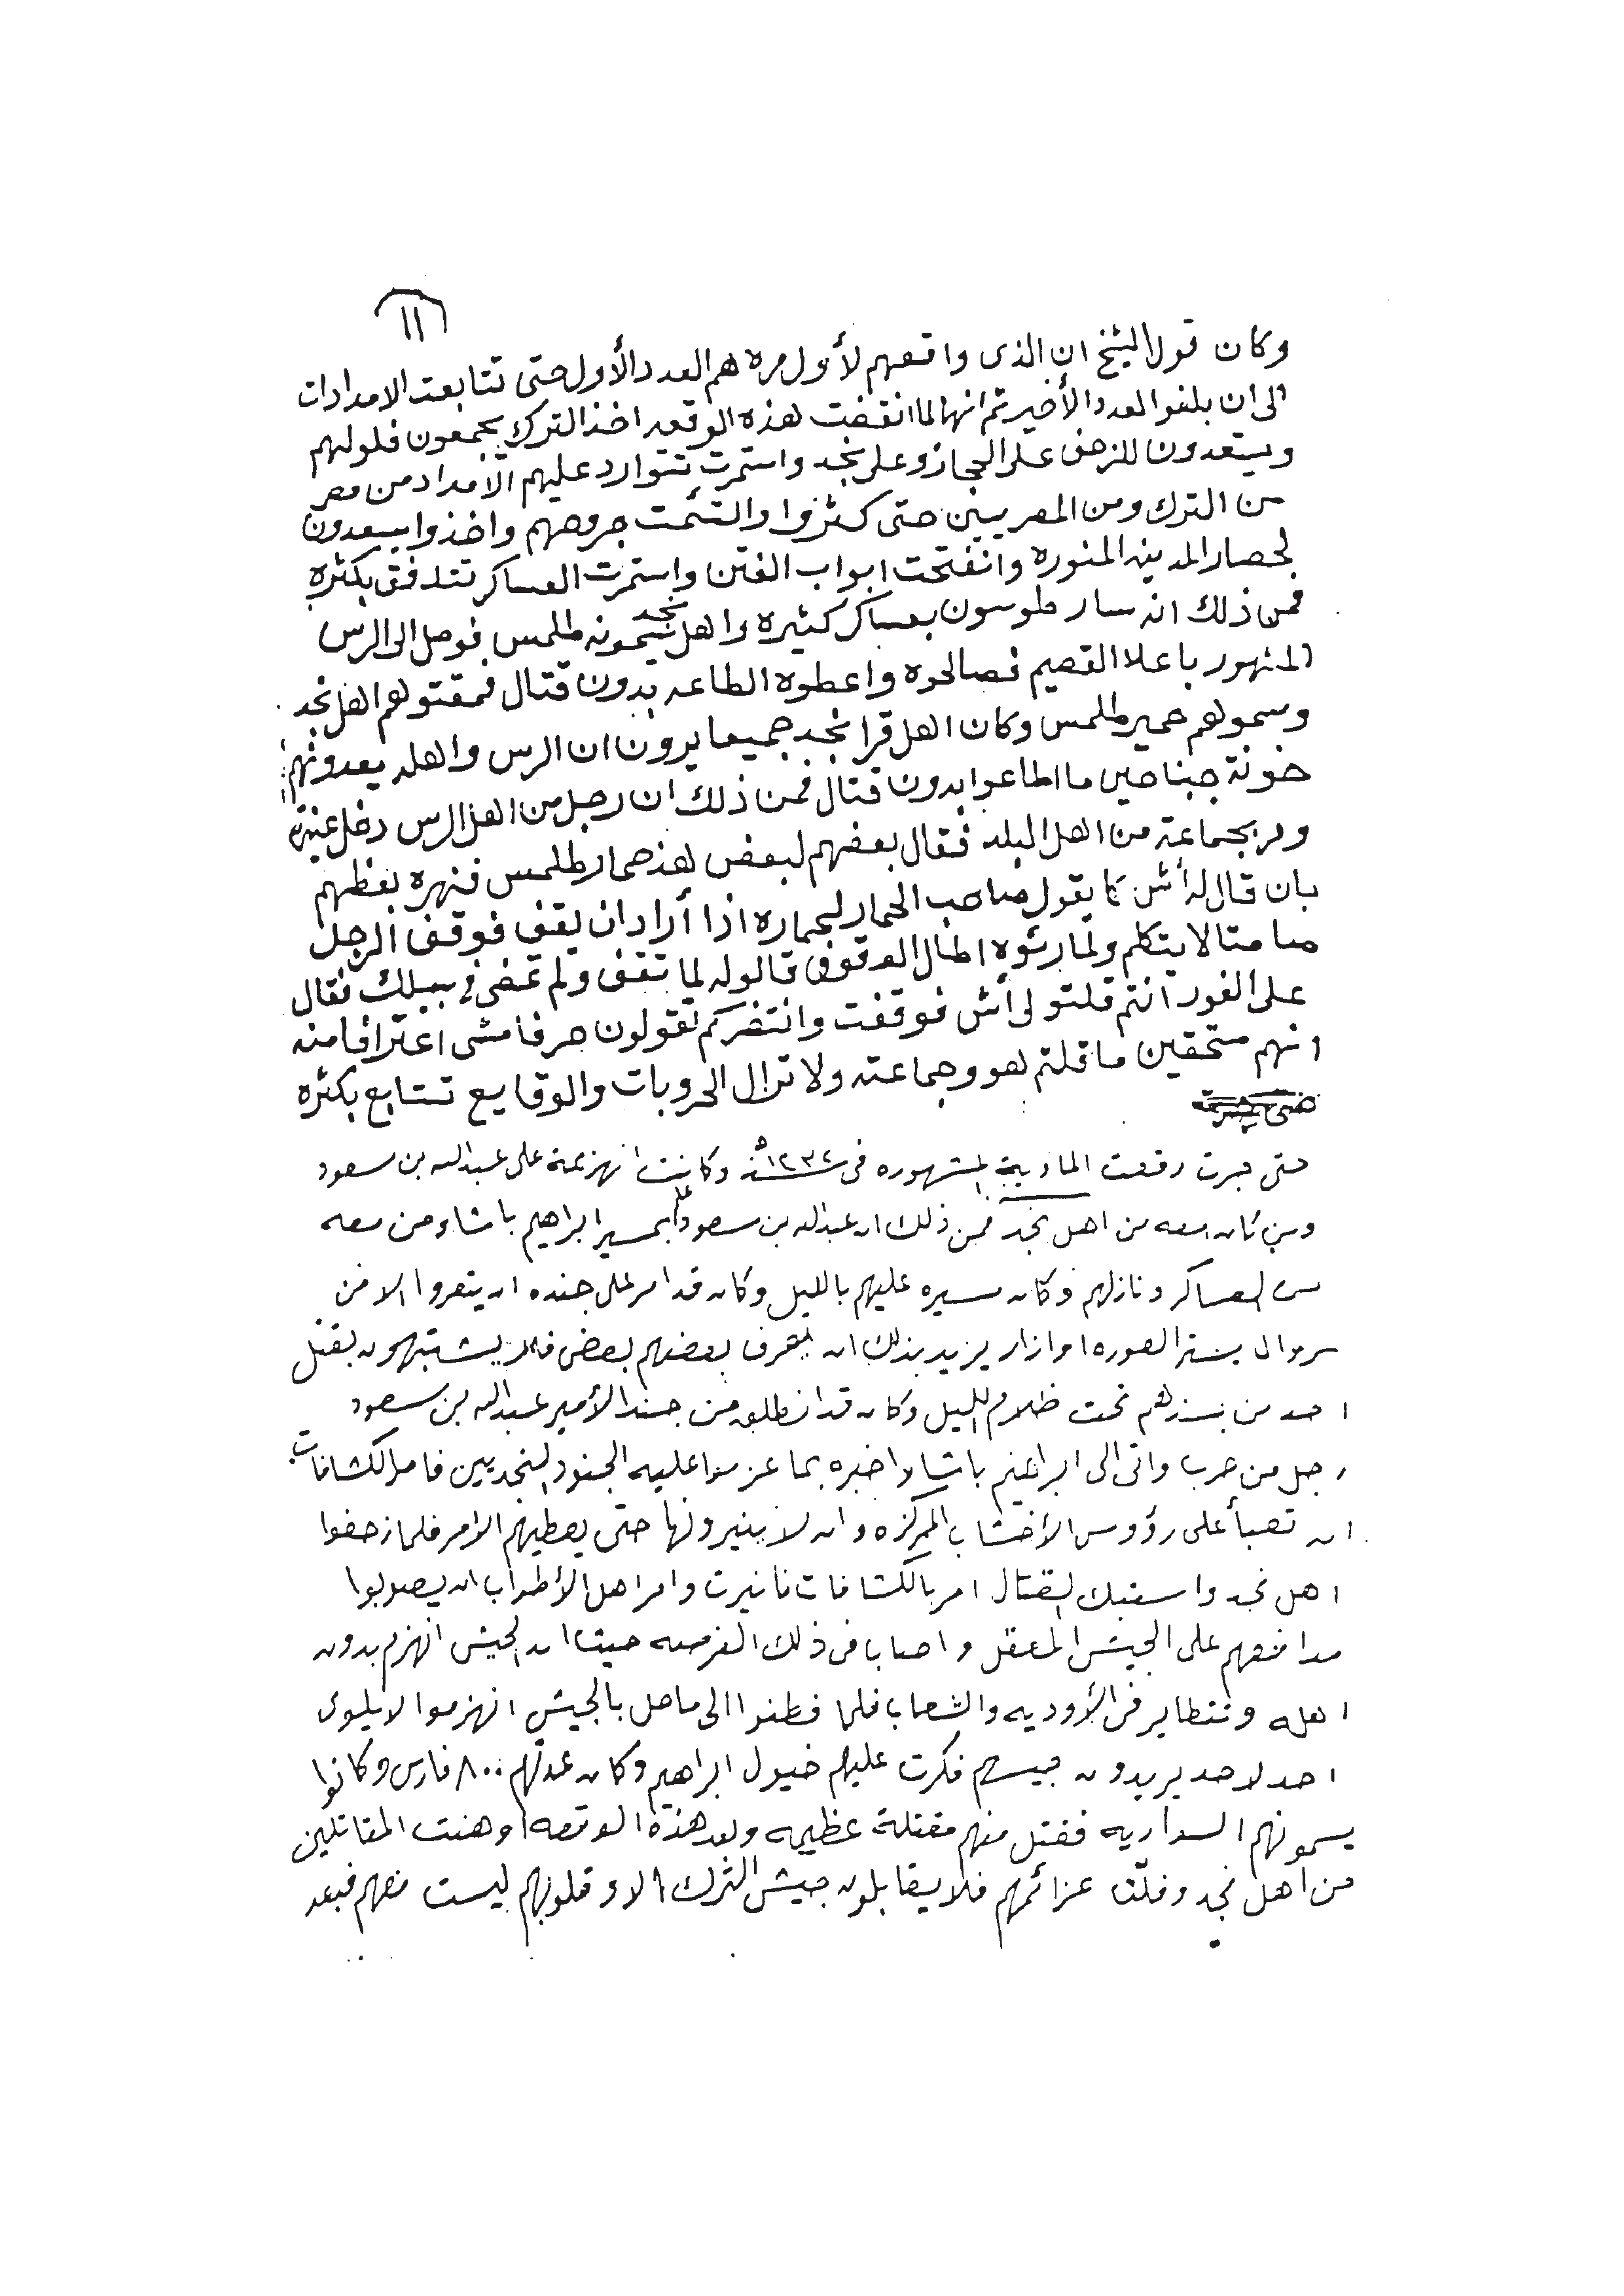 ١١
وكان قول الشيخ ان الذى واقعهم لأول مره هم العدد الأول حتى تتابعت الامدادات
الى ان بلغوا العدد الأخير ثم انها لما انقضت هذه الوقعه اخذ الترك يجمعون فلولهم
ويستعدون للزحف على الحجاز وعلى نجد واستمرت تتوارد عليهم الأمداد من مصر
من الترك ومن المصريين حتى كثروا والتئمت جروحهم واخذوا يستعدون
لحصار المدينه المنوره وانفتحت ابواب الفتن واستمرت العساكر تتدفق بكثره
فمن ذلك انه سار طوسون بعساكر كثيره واهل نجد يسمونه طلمس فوصل الى الرس
المشهور باعلا القصيم فصالحوه واعطوه الطاعه بدون قتال فمقتوهم اهل نجد
وسموهم حمير طلمس وكان اهل قرا نجد جميعا يرون ان الرس واهله يعدونهم
خونة جبنا حين ما اطاعوا بدون قتال فمن ذلك ان رجل من اهل الرس دخل عنيزه
ومر بجماعة من اهل البلد فقال بعضهم لبعض هذ حمار طلمس فنهره بعظهم
بان قال له أش كما يقول صاحب الحمار لحماره اذا أراد ان يقف فوقف الرجل
صامتا لا يتكلم ولما رئوه اطال الوقوف قالوله لما تقف ولم تمضى فى سبيلك فقال
على الفور انتم قلتو لى أش فوقفت وانتضركم تقولون حر فامشى اعترافا منه
انهم مستحقين ما قلتم هو وجماعته ولا تزال الحروبات والوقايع تتتابع بكثره
حتى جرت وقعت الماوية المشهوره فى سنة ١٢٣٢ه وكانت الهزيمة على عبدالله بن سعود
ومن كان معه من اهل نجد فمن ذلك ان عبدالله بن سعود علم بمسير ابراهيم باشا ومن معه
من العساكر ونازلهم وكان مسيره عليهم بالليل وكان قد امر على جنده ان يتعروا الا من
سروال يستر العوره او ازار يريد بذلك ان يعرف بعضهم بعض فلا يشتبهون بقتل
احد من بندرهم تحت ظلام الليل وكان قد انطلق من جند الأمير عبدالله بن سعود
رجل من حرب واتى الى ابراهيم باشا واخبره بما عزموا عليه الجنود النجديين فامر الكشافات
ان تعبأ على رؤوس الأخشاب المركزه وان لا ينيرونها حتى يعطيهم الامر فلما زحفوا
اهل نجد واستبك القتال امر بالكشافات فانيرت وامر اهل الأطواب ان يصوبوا
مدافعهم على الجيش المعقل واصابا فى ذلك الفرصه حيث ان الجيش انهزم بدون
اهله وتتطاير فى الأوديه والشعاب فلما فطنوا الى ما حل بالجيش انهزموا لا يلوى
احد لاحد يريدون جيشهم فكرت عليهم خيول ابراهيم وكان عدتهم ٨٠٠ فارس وكانوا
يسمونهم السواريه فقتل منهم مقتلة عظيمه وبعد هذه الوقعه اوهنت المقاتلين
من اهل نجد وفلّت عزائمهم فلا يقابلون جيش الترك الا وقلوبهم ليست معهم فبعد